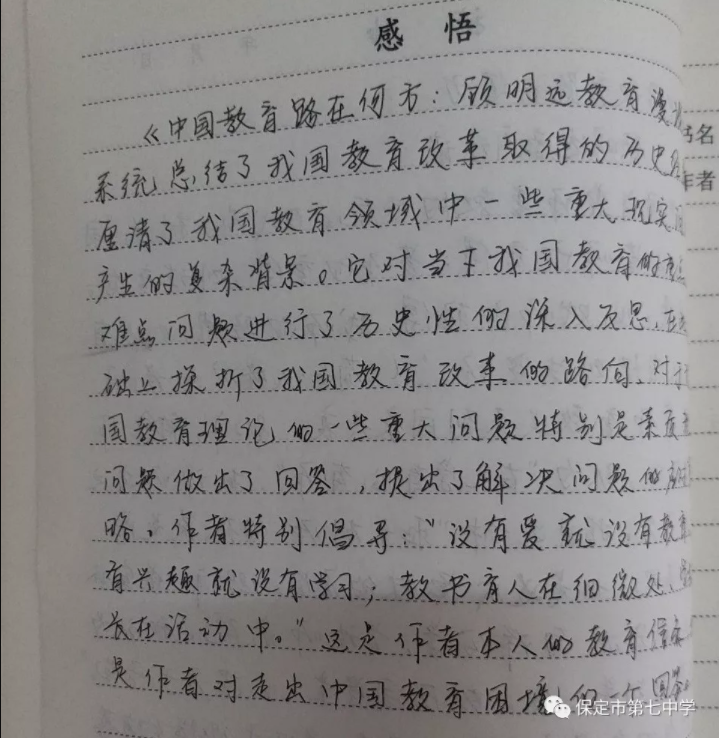 感 悟
《中国教育路在何方：顾明远教育漫
系统总结了我国教育改革取得的历史
厘清了我国教育领域中一些重大现实
产生的复杂背景。它对当下我国教育的重
难点问题进行了历史性的深入反思，在
础上探析了我国教育改革的路向，对于
国教育理论的一些重大问题特别是素质
问题做出了回答，提出了解决问题的
略，作者特别倡导："没有爱就没有教育
有兴趣就没有学习；教书育人在细微处，
长在活动中。"这是作者本人的教育信
是作者对走出中国教育困境的一个回答
书名
作者
保定市第七中学